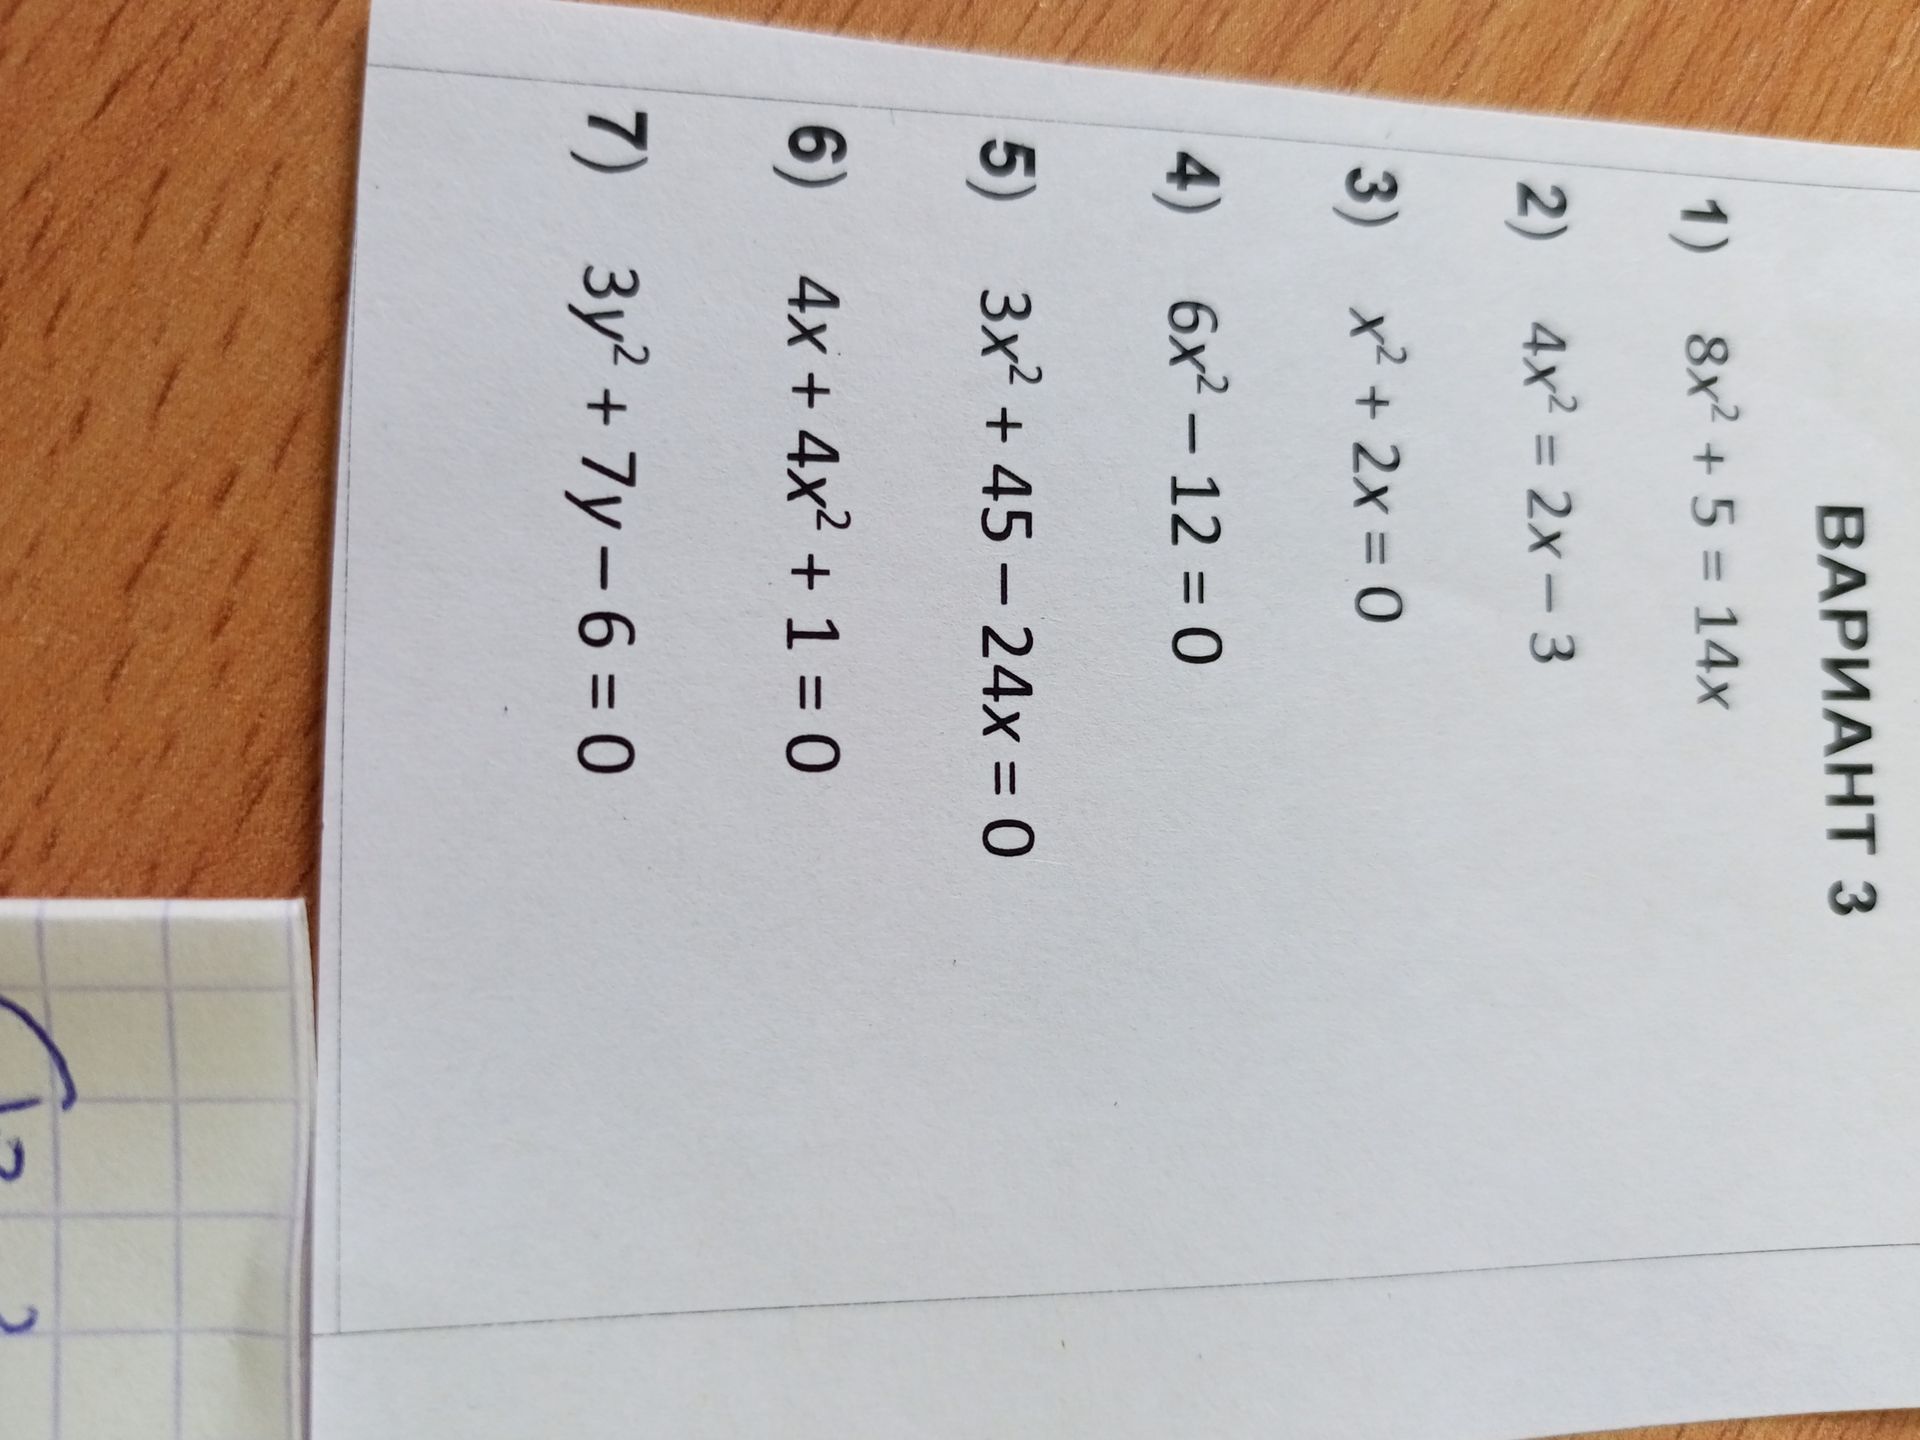 ВАРИАНТ 3
1) 8x² + 5 = 14x
2) 4x² = 2x – 3
3) x² + 2x = 0
4) 6x² – 12 = 0
5) 3x² + 45 – 24x = 0
6) 4x + 4x² + 1 = 0
7) 3y² + 7y – 6 = 0